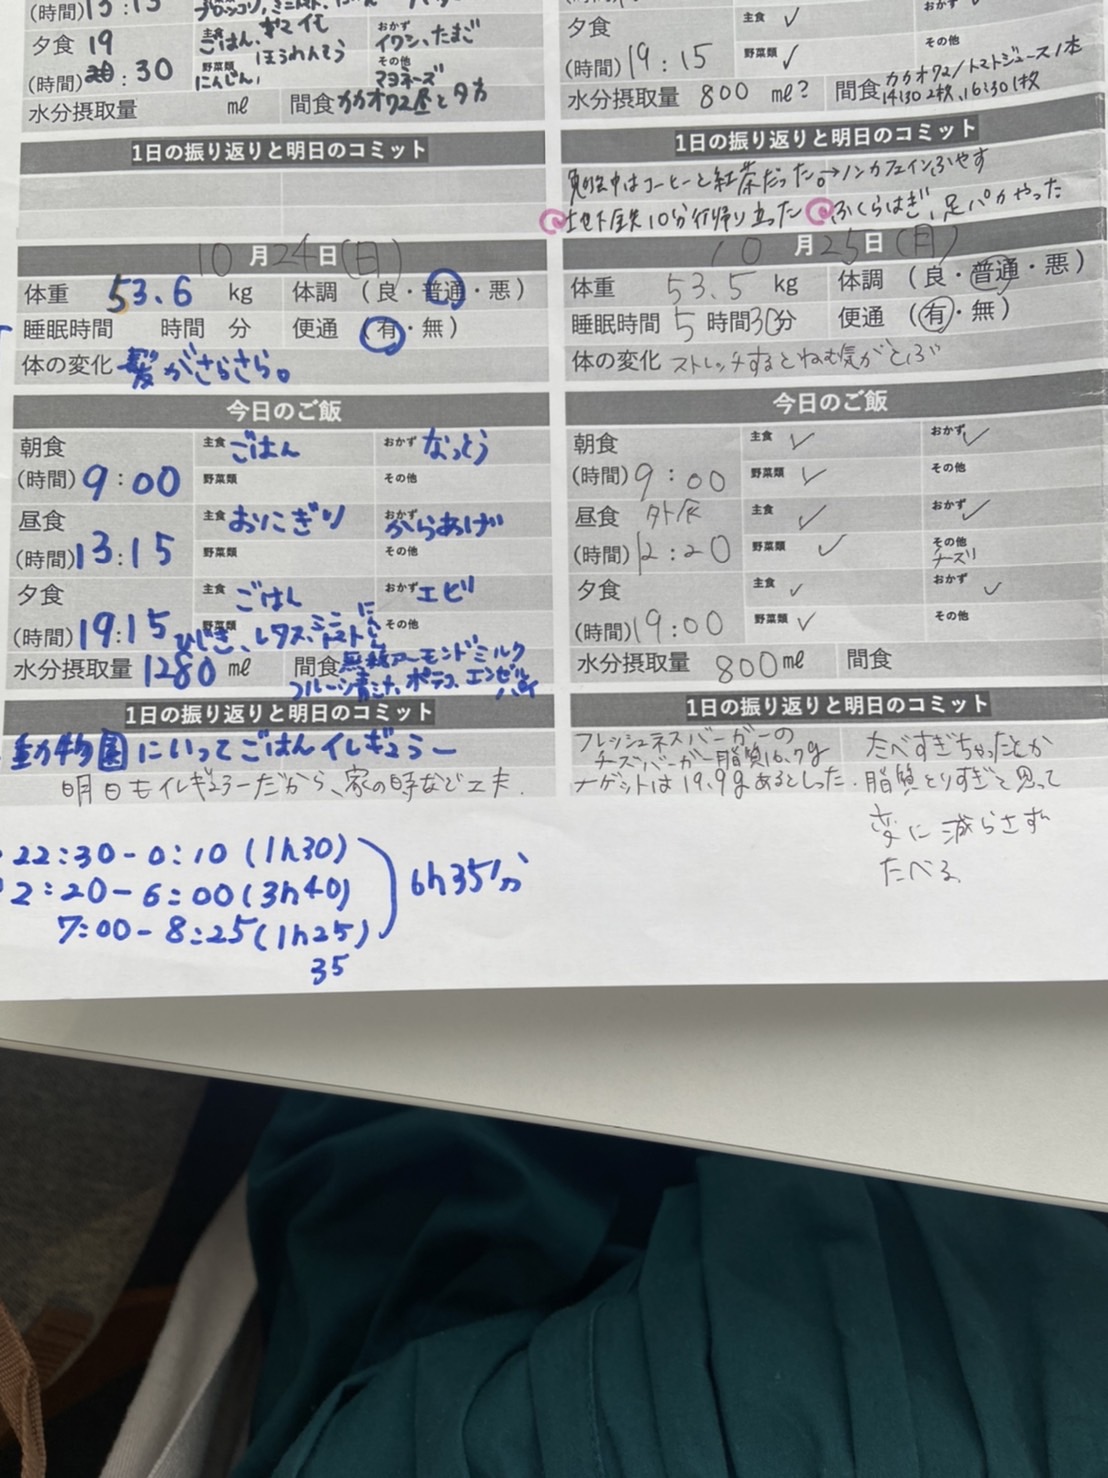 (時間)15:15
夕食 19
(時間) :30
主食 ごはん、
おかず イワシ、たまご
野菜類 ほうれんそう
にんじん、
その他
マヨネーズ
水分摂取量 ml
間食 カカオ72昼と夕方
1日の振り返りと明日のコミット
10月24日(日)
体重 53.6 kg 体調 (良・普通・悪)
睡眠時間 時間 分 便通 (有・無)
体の変化 髪がさらさら。
今日のご飯
朝食
(時間)9:00
主食 ごはん
おかず なっとう
野菜類
その他
昼食
(時間)13:15
主食 おにぎり
おかず からあげ
野菜類
その他
夕食
(時間)19:15
主食 ごはん
おかず エビ
野菜類
ひじき、レタス、ミニトマト、にんじん
その他
水分摂取量 1280 ml
間食 無糖アーモンドミルク
フルーツ青汁、ポテコ、エンゼルパイ
1日の振り返りと明日のコミット
動物園にいってごはんイレギュラー
明日もイレギュラーだから、家の時などで工夫.
22:30-0:10 (1h30)
2:20-6:00(3h40)
7:00-8:25(1h25)
35
6h35分
夕食
(時間)19:15
主食 ✓
おかず
野菜類 ✓
その他
水分摂取量 800 ml?
間食 カカオ72/トマトジュース1本
14:30 2枚、16:30 1枚
1日の振り返りと明日のコミット
勉強中はコーヒーと紅茶だった。→ノンカフェインふやす
地下鉄10分行帰り立った ふくらはぎ、足パカやった
10月25日(月)
体重 53.5 kg 体調 (良・普通・悪)
睡眠時間 5時間30分 便通 (有・無)
体の変化 ストレッチするとねむ気がとぶ
今日のご飯
朝食
(時間)9:00
主食 ✓
おかず ✓
野菜類 ✓
その他
昼食 外食
(時間)12:20
主食 ✓
おかず ✓
野菜類 ✓
その他
チーズ
夕食
(時間)19:00
主食 ✓
おかず ✓
野菜類 ✓
その他
水分摂取量 800ml
間食
1日の振り返りと明日のコミット
フレッシュネスバーガーの
チーズバーガー脂質16.7g
ナゲットは19.9gあるとしった.
たべすぎちゃったとか
脂質とりすぎと思って
変に減らさず
たべる.